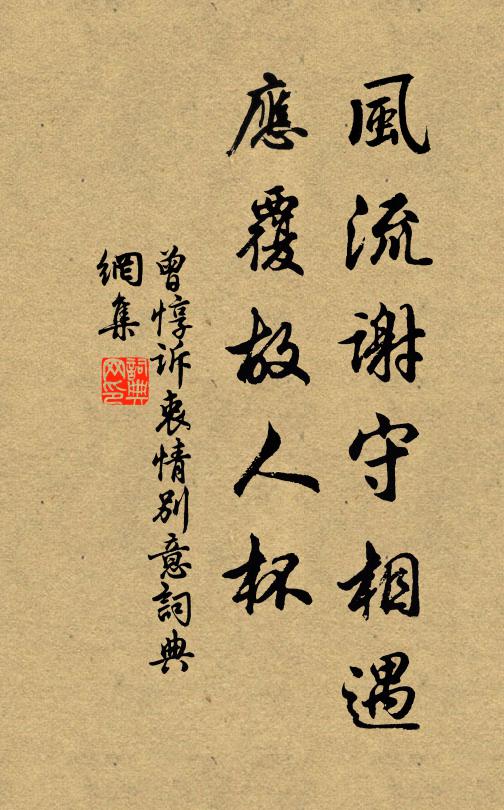 風流謝守相遇
應覆故人杯
曾惇訴衷情別意詞典
網集
詞典网印